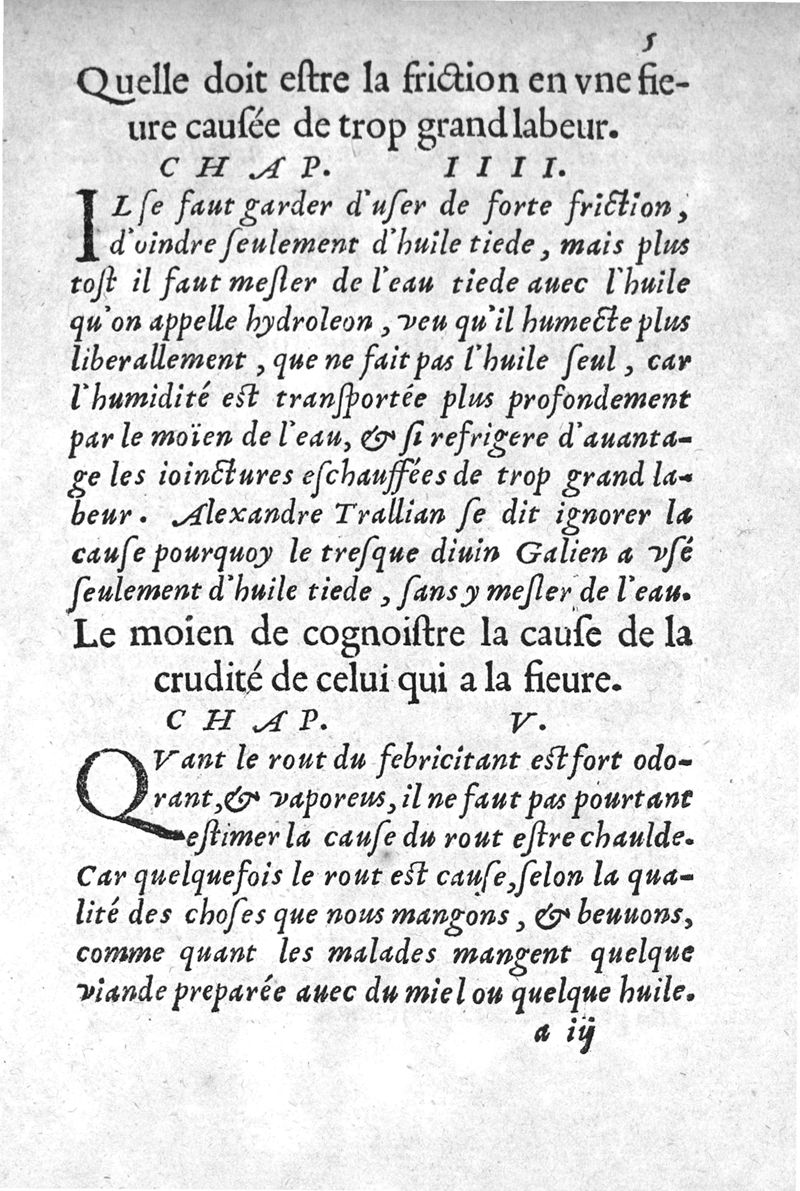 5
Quelle doit eſtre la friction en vne fie-
ure cauſée de trop grand labeur.
CHAP. IIII.
IL ſe faut garder d'vſer de forte friction,
d'oindre ſeulement d'huile tiede, mais plus
toſt il faut meſler de l'eau tiede auec l'huile
qu'on appelle hydroleon, veu qu'il humecte plus
liberallement, que ne fait pas l'huile ſeul, car
l'humidité eſt tranſportée plus profondement
par le moïen de l'eau, & ſi refrigere d'auanta-
ge les ioinctures eſchauffées de trop grand la-
beur. Alexandre Trallian ſe dit ignorer la
cauſe pourquoy le treſque diuin Galien a vſé
ſeulement d'huile tiede, ſans y meſler de l'eau.
Le moien de cognoiſtre la cauſe de la
crudité de celui qui a la fieure.
CHAP. V.
QVant le rout du febricitant eſt fort odo-
rant, & vaporeus, il ne faut pas pourtant
eſtimer la cauſe du rout eſtre chaulde.
Car quelquefois le rout eſt cauſe, ſelon la qua-
lité des choſes que nous mangons, & beuuons,
comme quant les malades mangent quelque
viande preparée auec du miel ou quelque huile.
a iij